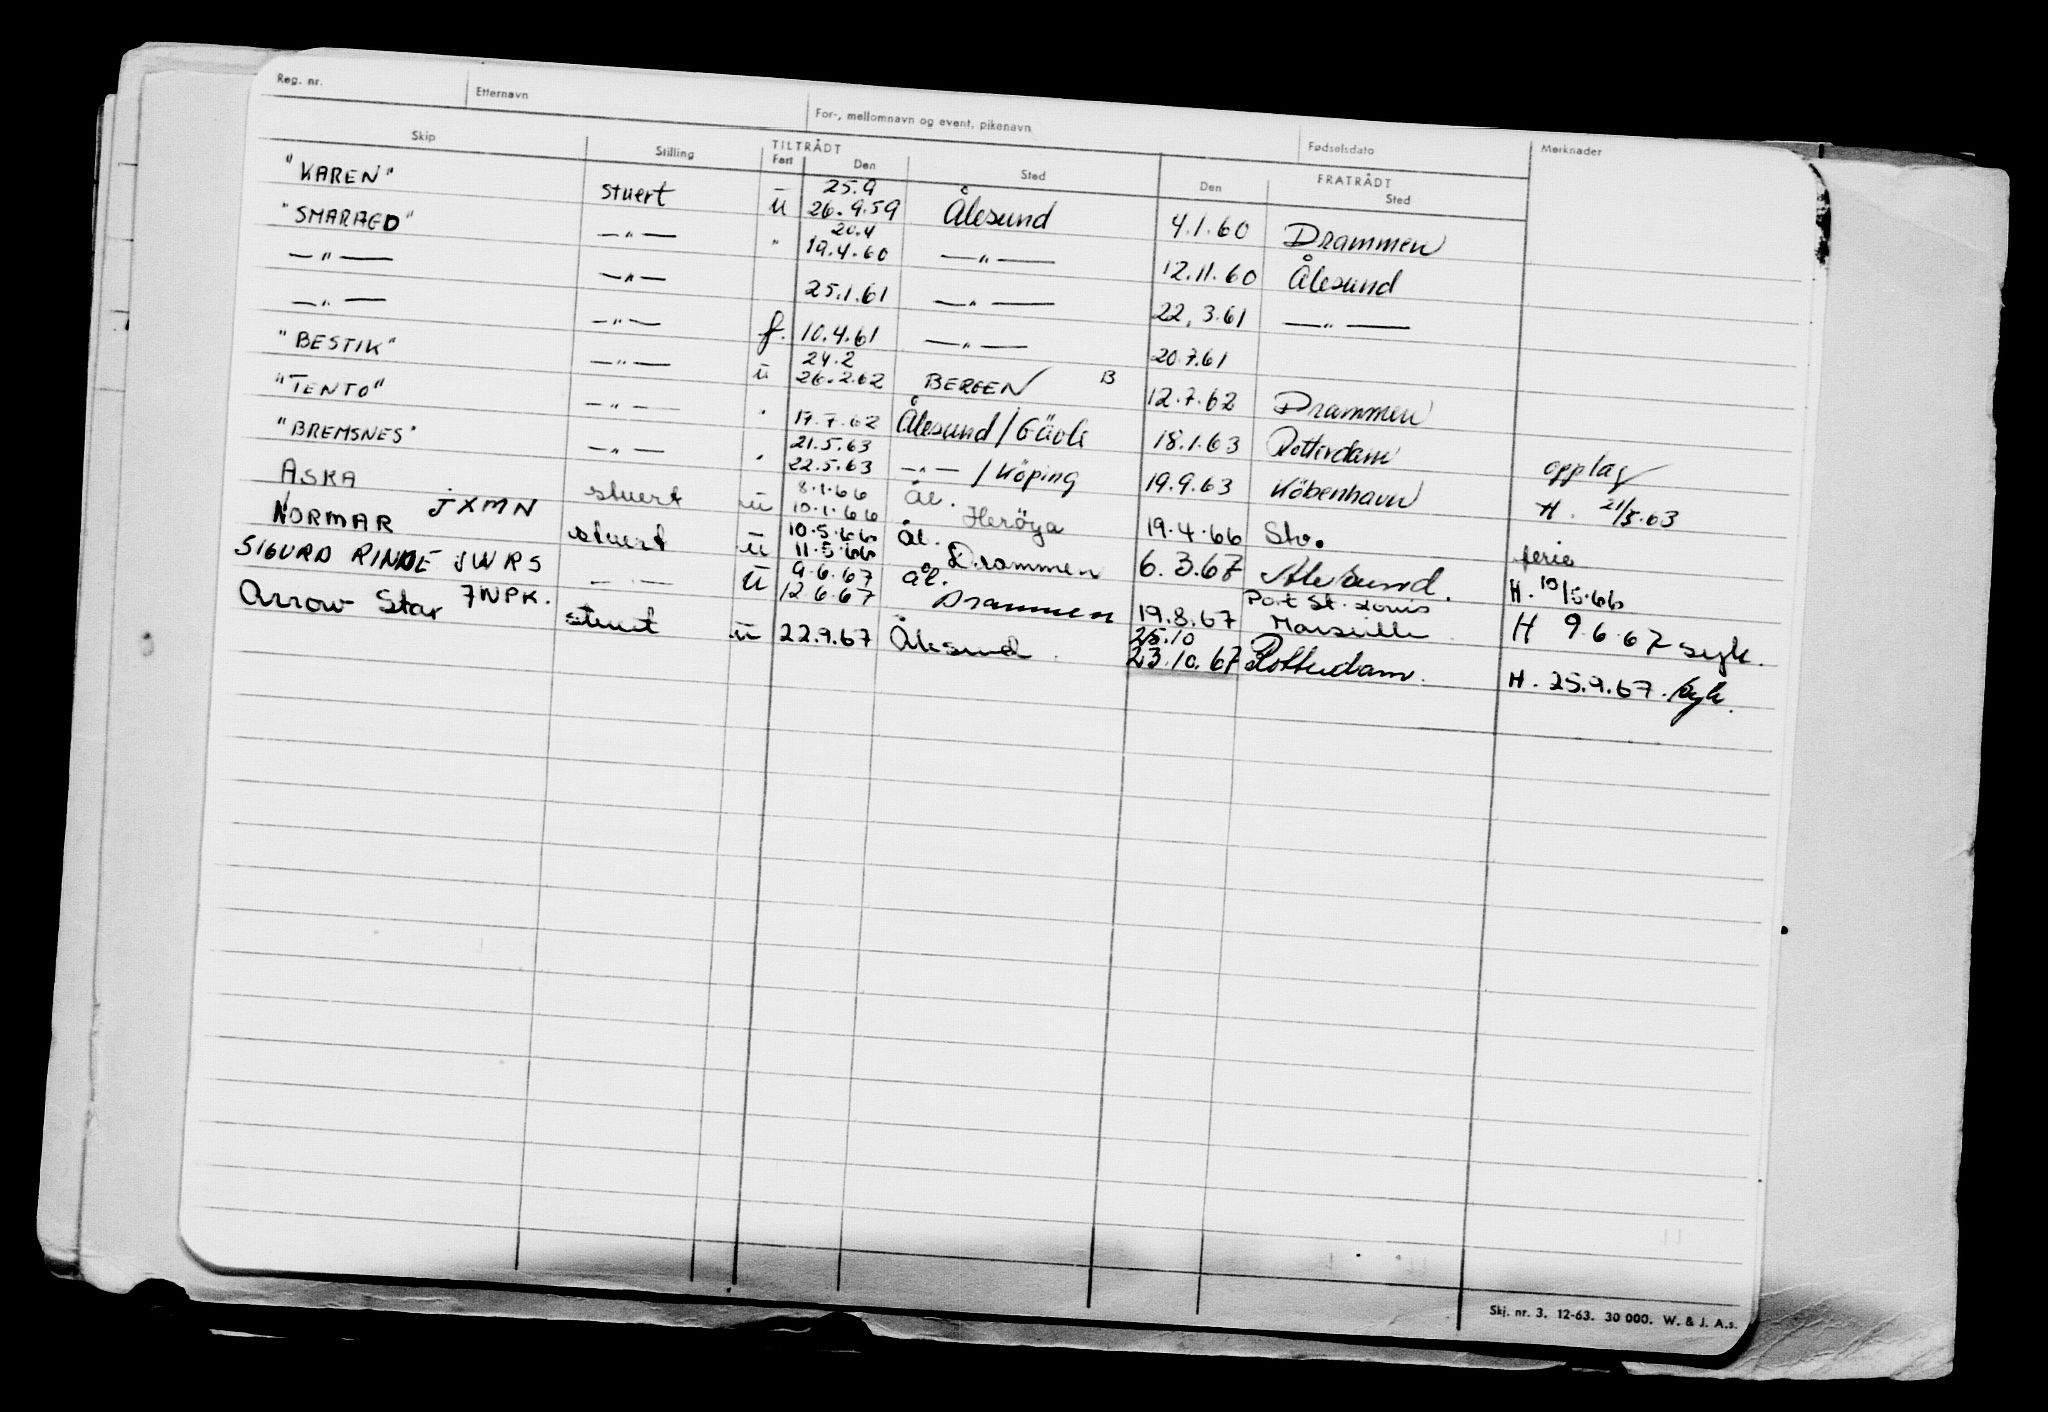 Reg. nr. Etternavn For-, mellomnavn og event. pikenavn Fødselsdato Merknader
Skip Stilling TILTRÅDT Fart Den Sted FRATRÅDT Den Sted
"KAREN" stuert u 25.9 26.9.59 Ålesund 4.1.60 Drammen
"SMARAGD" —"— " 20.4 19.4.60 —"— 12.11.60 Ålesund
—"— —"— 25.1.61 —"— 22.3.61 —"—
—"— —"— f. 10.4.61 —"— 20.7.61
"BESTIK" —"— u 24.2 26.2.62 BERGEN B 12.7.62 Drammen
"TENTO" —"— " 17.7.62 Ålesund/Gävle 18.1.63 Rotterdam opplag
"BREMSNES" —"— " 21.5.63 22.5.63 —"—/Köping 19.9.63 Köbenhavn H. 21/5.63
ASKA JXMN stuert u 8.1.66 10.1.66 Ål. Heröya 19.4.66 Stv. ferie
NORMAR stuert u 10.5.66 11.5.66 Ål. Drammen 6.3.67 Ålesund. H. 10/5.66
SIGURD RINDE JWRS — — u 9.6.67 12.6.67 ål. Drammen 19.8.67 Port St. Louis Marseille H 9.6.67 syk.
Arrow Star 7WPK. stuert u 22.9.67 Ålesund. 25.10 23.10.67 Rotterdam. H. 25.9.67. syk.
Skj. nr. 3. 12-63. 30 000. W. & J. A.s.